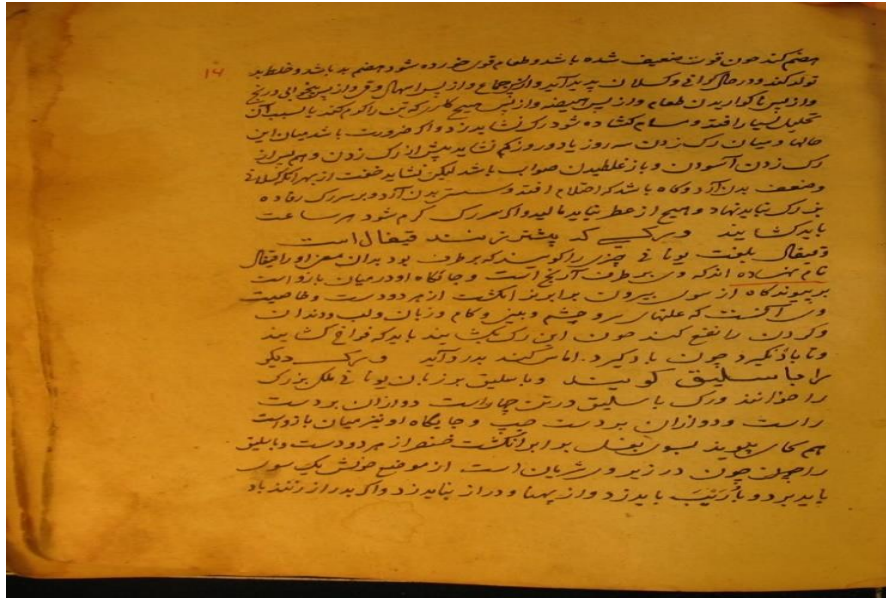 هضم کند چون قوت ضعیف شده باشد و طعام قوی خورده شود هضم بد باشد و خلط بد
۱۴
تولد کند و در حال گرانی و کسلان پدید آید و از پس جماع و از پس اسهال و قی و از پس بیخوابی و رنج
و از پس ناگواریدن طعام و از پس هیضه و از پس هیچ کار که تن را گرم کند یا سبب آن
تحلیل بسیار افتد و مسام گشاده شود رک نشاید زد و اگر ضرورت باشد میان این
حالها و میان رک زدن سه روز یا دو روز کم نشاید پیش از رک زدن و هم پس از
رک زدن آسودن و باز غلطیدن صواب باشد لیکن نشاید خفت از بهر آنکه کسلانی
و ضعف بدن آرد و گاه باشد که اخلام افتد و سستی بدن آرد و بر سر رک رفاده
بر رک نباید نهاد و هیچ از عطر نباید مالید و اگر سر رک گرم شود هر ساعت
باید گشایند و رکی که پیشتر زنند قیفال است
و قیفال بلغت یونانی چیزی را گویند که بر طرف بود بدان معنی او را قیفال
نام نهاده اند که وی بر طرف آرنج است و جایگاه او در میان بازو است
بر پیوندگاه از سوی بیرون برابر نر انگشت از هر دو دست و خاصیت
وی آنست که علتهای سر و چشم و بینی و کام و زبان و لب و دندان
و گردن را نفع کند چون این رک بگشایند باید که فراخ گشایند
و تا باد نگیرد چون باد گیرد اماس کند بدر آید و رک دیگر
را باسلیق گویند و باسلیق بزبان یونانی ملک بزرک
را خوانند و رک باسلیق در تن چهار است دو از آن بر دست
راست و دو از آن بر دست چپ و جایگاه او نیز میان بازو است
هم گاه پیوند بسوی بغل برابر انگشت خنصر از هر دو دست و باسلیق
را چون در زیر وی شریان است از موضع خویش یک سوی
باید برد و باید زد و از پهنا و دراز نباید زد و اگر بدراز زنند باد